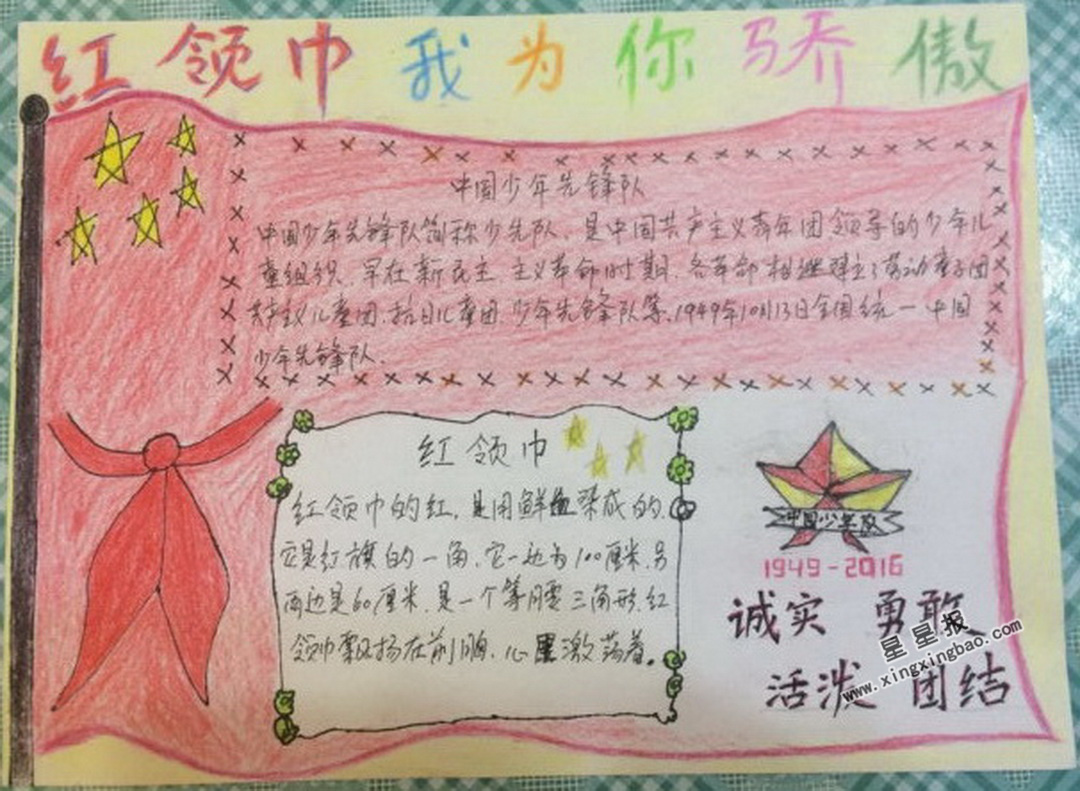 红领巾我为你骄傲
中国少年先锋队
中国少年先锋队简称少先队、是中国共产主义青年团领导的少年儿
童组织、早在新民主主义革命时期、各革命相继建立了劳动童子团
共产主义儿童团、抗日儿童团、少年先锋队等、1949年10月13日全国统一中国
少年先锋队、
红领巾
红领巾的红、是用鲜血染成的、
它是红旗的一角、它一边为100厘米、另
两边是60厘米、是一个等腰三角形、红
领巾飘扬在前胸、心里激荡着。
中国少年队
1949-2016
诚实 勇敢
活泼 团结
星星报
www.xingxingbao.com